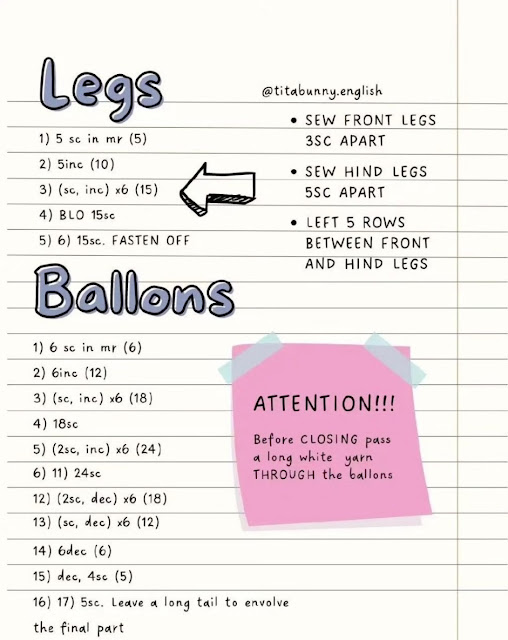 Legs
@titabunny.english
1) 5 sc in mr (5)
2) 5inc (10)
3) (sc, inc) x6 (15)
4) BLO 15sc
5) 6) 15sc. FASTEN OFF
• SEW FRONT LEGS
3SC APART
• SEW HIND LEGS
5SC APART
• LEFT 5 ROWS
BETWEEN FRONT
AND HIND LEGS
Ballons
1) 6 sc in mr (6)
2) 6inc (12)
3) (sc, inc) x6 (18)
4) 18sc
5) (2sc, inc) x6 (24)
6) 11) 24sc
12) (2sc, dec) x6 (18)
13) (sc, dec) x6 (12)
14) 6dec (6)
15) dec, 4sc (5)
16) 17) 5sc. Leave a long tail to envolve
the final part
ATTENTION!!!
Before CLOSING pass
a long white yarn
THROUGH the ballons